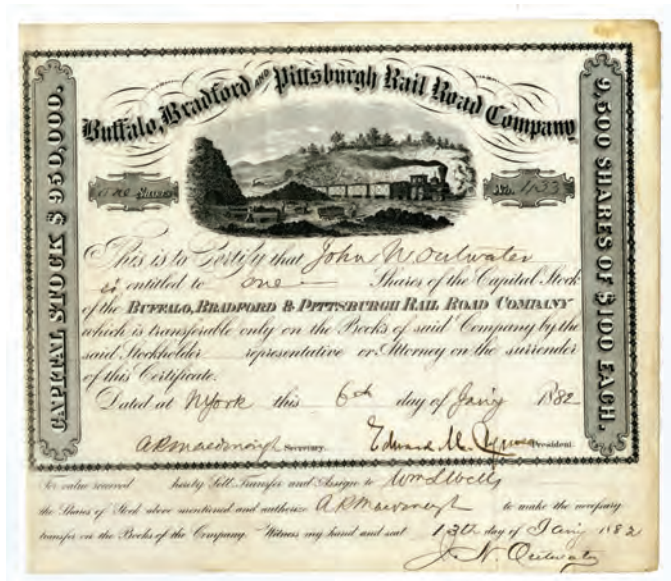 Buffalo, Bradford AND Pittsburgh Rail Road Company
CAPITAL STOCK $950,000.
9,500 SHARES OF $100 EACH.
one Shares
No. 433
This is to Certify that John N. Outwater
is entitled to one Shares of the Capital Stock
of the BUFFALO, BRADFORD & PITTSBURGH RAIL ROAD COMPANY
which is transferable only on the Books of said Company by the
said Stockholder representative or Attorney on the surrender
of this Certificate.
Dated at NYork this 6th day of Jan'y 1882
A R Macdonough Secretary. Edward M. President.
For value received hereby Sell, Transfer and Assigne to Wm L Wells
the Shares of Stock above mentioned and authorize A R Macdonough to make the necessary
transfer on the Books of the Company. Witness my hand and seal 13th day of Jan'y 1882
J. N. Outwater